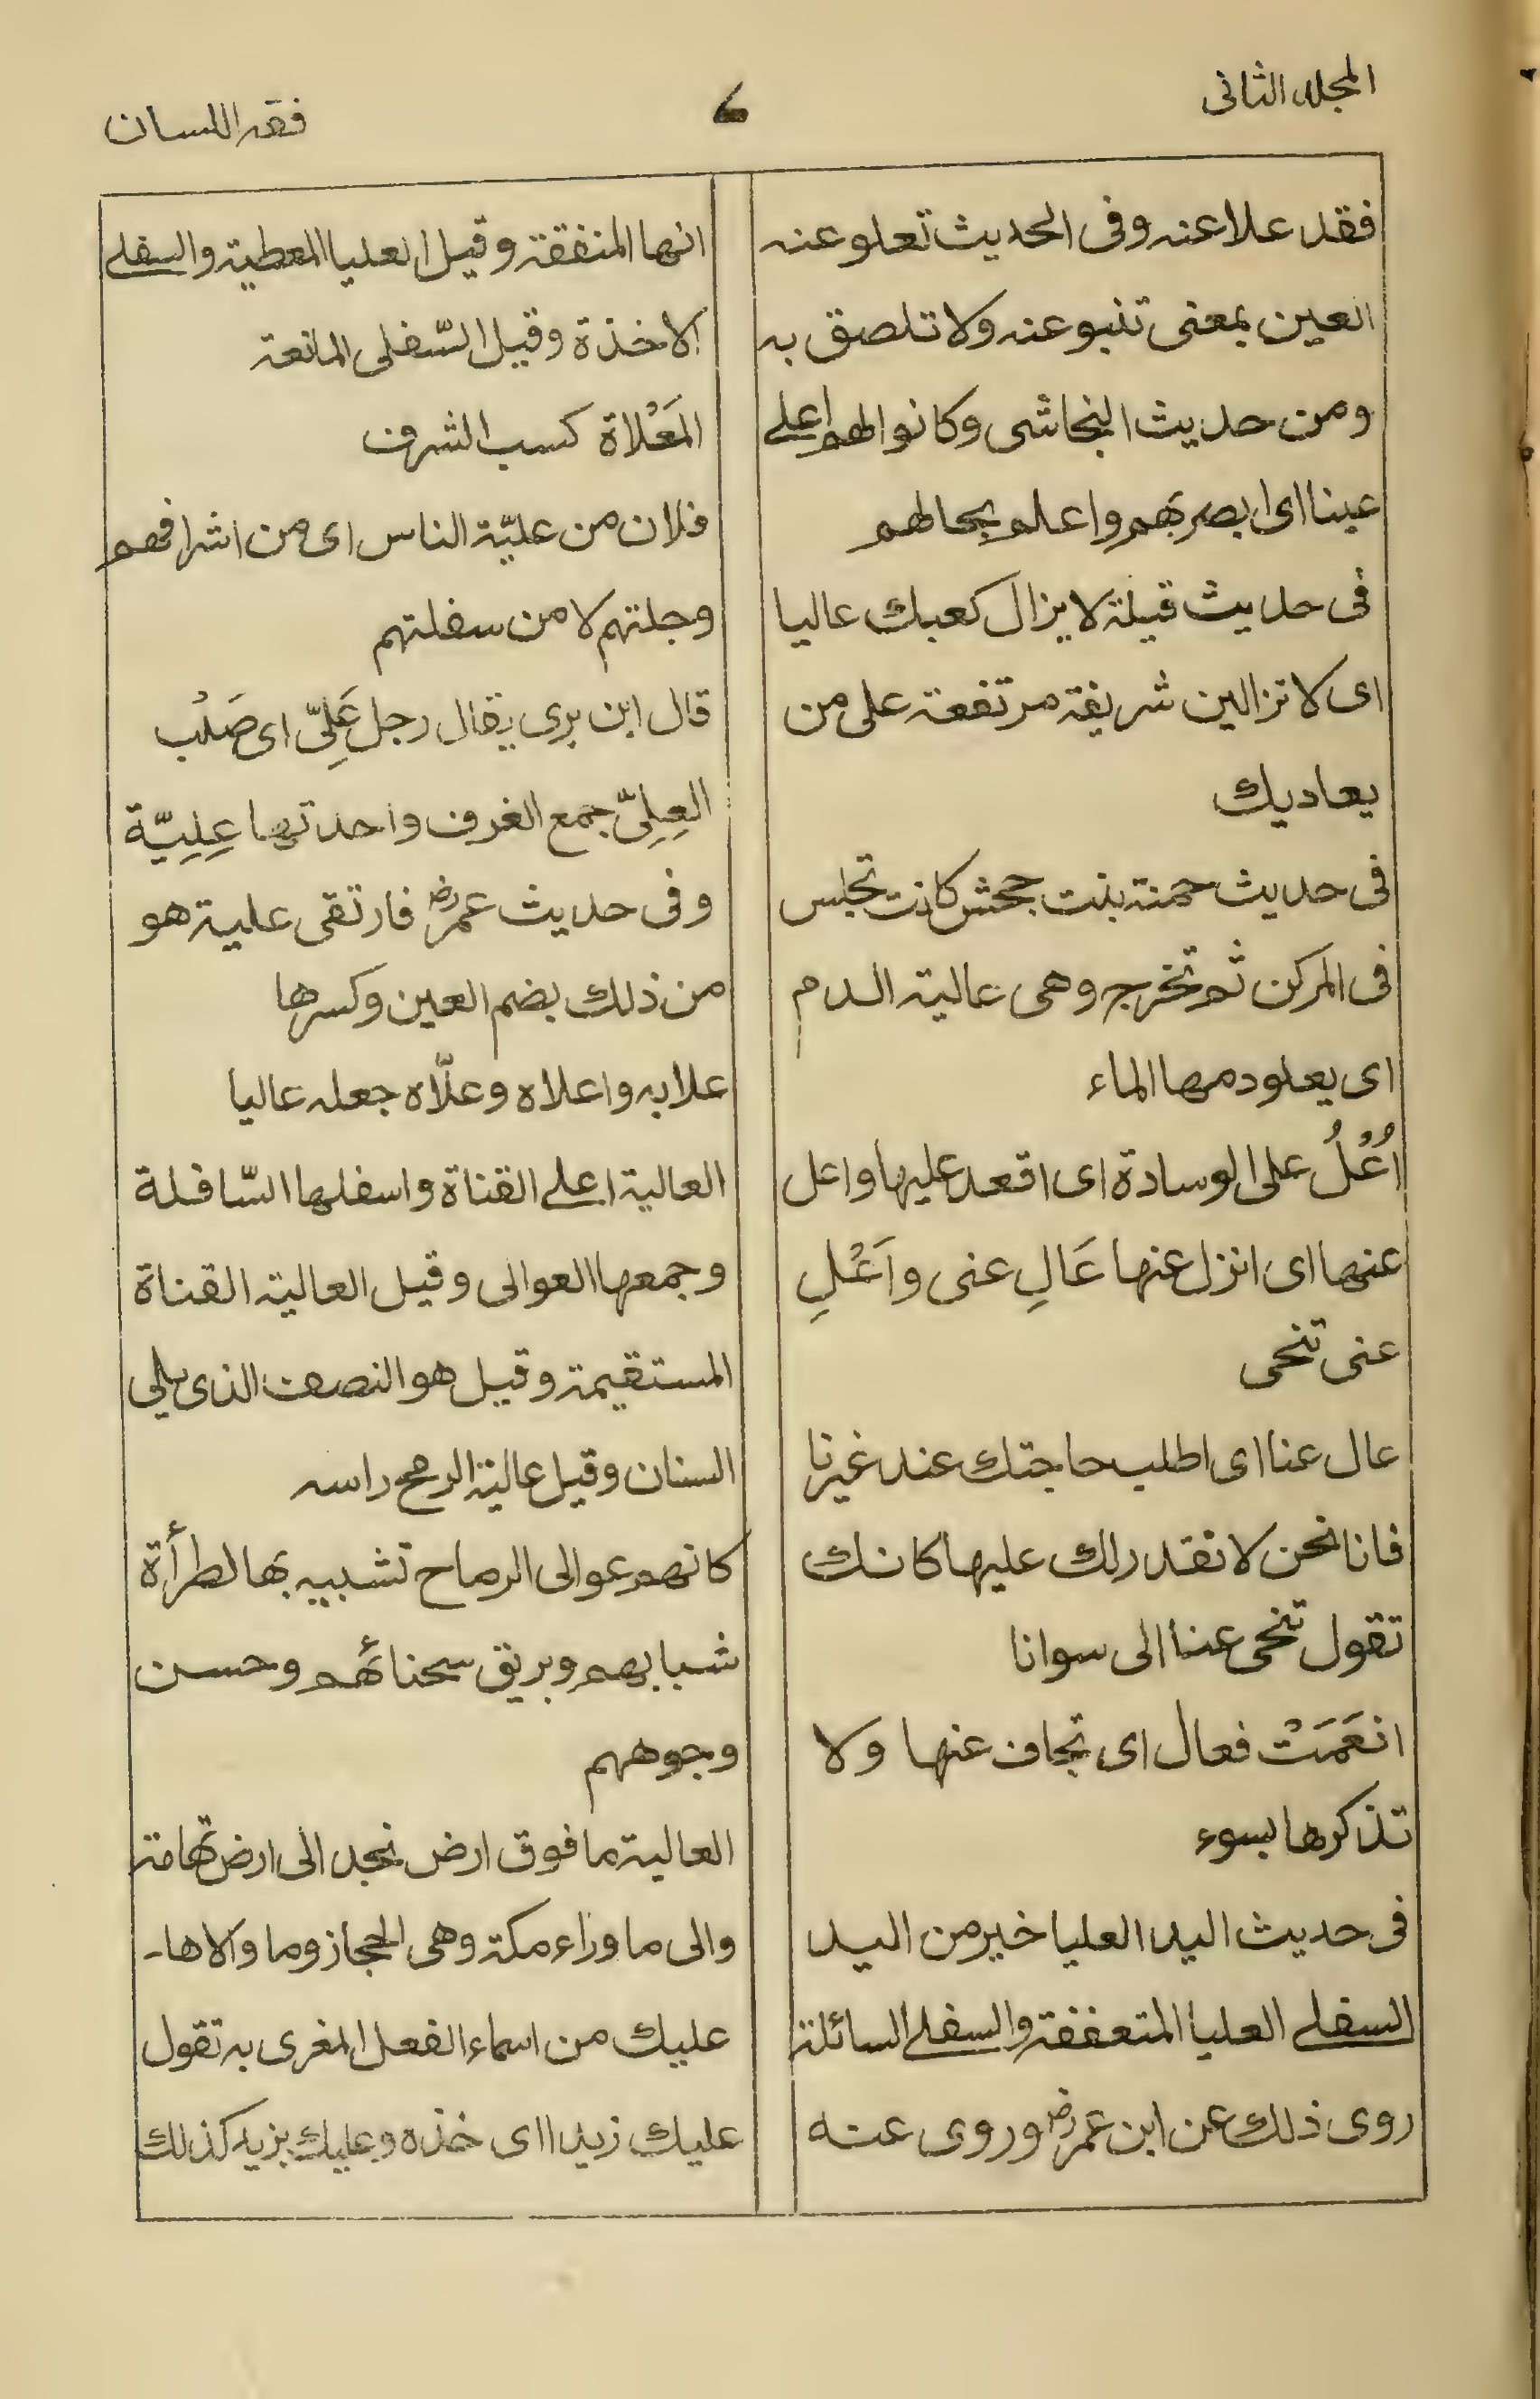 المجلد الثانى
6
فقه اللسان
فقد علا عنه وفى الحديث تعلو عنه
العين بمعنى تنبو عنه ولا تلصق به
ومن حديث النجاشى وكانوا بهم اعلے
عينا اى ابصر بهم واعلم بحالهم
فى حديث قيلة لا يزال كعبك عاليا
اى لا تزالين شريفة مرتفعة على من
يعاديك
فى حديث حمنة بنت جحش كانت تجلس
فى المركن ثم تخرج وهى عالية الدم
اى يعلو دمها الماء
اُعْلُ على الوسادة اى اقعد عليها واعل
عنها اى انزل عنها عَالِ عنى واَعْلِ
عنى تنحى
عال عنا اى اطلب حاجتك عند غيرنا
فانا نحن لا نقدر لك عليها كانك
تقول تنحى عنا الى سوانا
انعَمَتْ فعال اى تجاف عنها ولا
تذكرها بسوء
فى حديث اليد العليا خير من اليد
السفلے العليا المتعففة والسفلے السائلة
روى ذلك عن ابن عمرؓ وروى عنه
انها المنفقة وقيل العليا المعطية والسفلے
الاخذة وقيل السّفلى المانعة
المَعْلاة كسب الشرف
فلان من عليّة الناس اى من اشرافهم
وجلتهم لا من سفلتهم
قال ابن برى يقال رجل عَلِىّ اى صَلْب
العِلِىّ جمع الغرف واحدتها عِلِيّة
وفى حديث عمرؓ فارتقى علية هو
من ذلك بضم العين وكسرها
علا به واعلاه وعلّاه جعله عاليا
العالية اعلے القناة واسفلها السّافلة
وجمعها العوالى وقيل العالية القناة
المستقيمة وقيل هو النصف الذى يلى
السنان وقيل عالية الرمح راسه
كانهم عوالى الرماح تشبيه بها لطرأة
شبابهم وبريق سحنائهم وحسن
وجوههم
العالية ما فوق ارض نجد الى ارض تهامة
والى ما وراء مكة وهى الحجاز وما والاها-
عليك من اسماء الفعل المغرى به تقول
عليك زيدا اى خذه وعليك بزيد كذلك